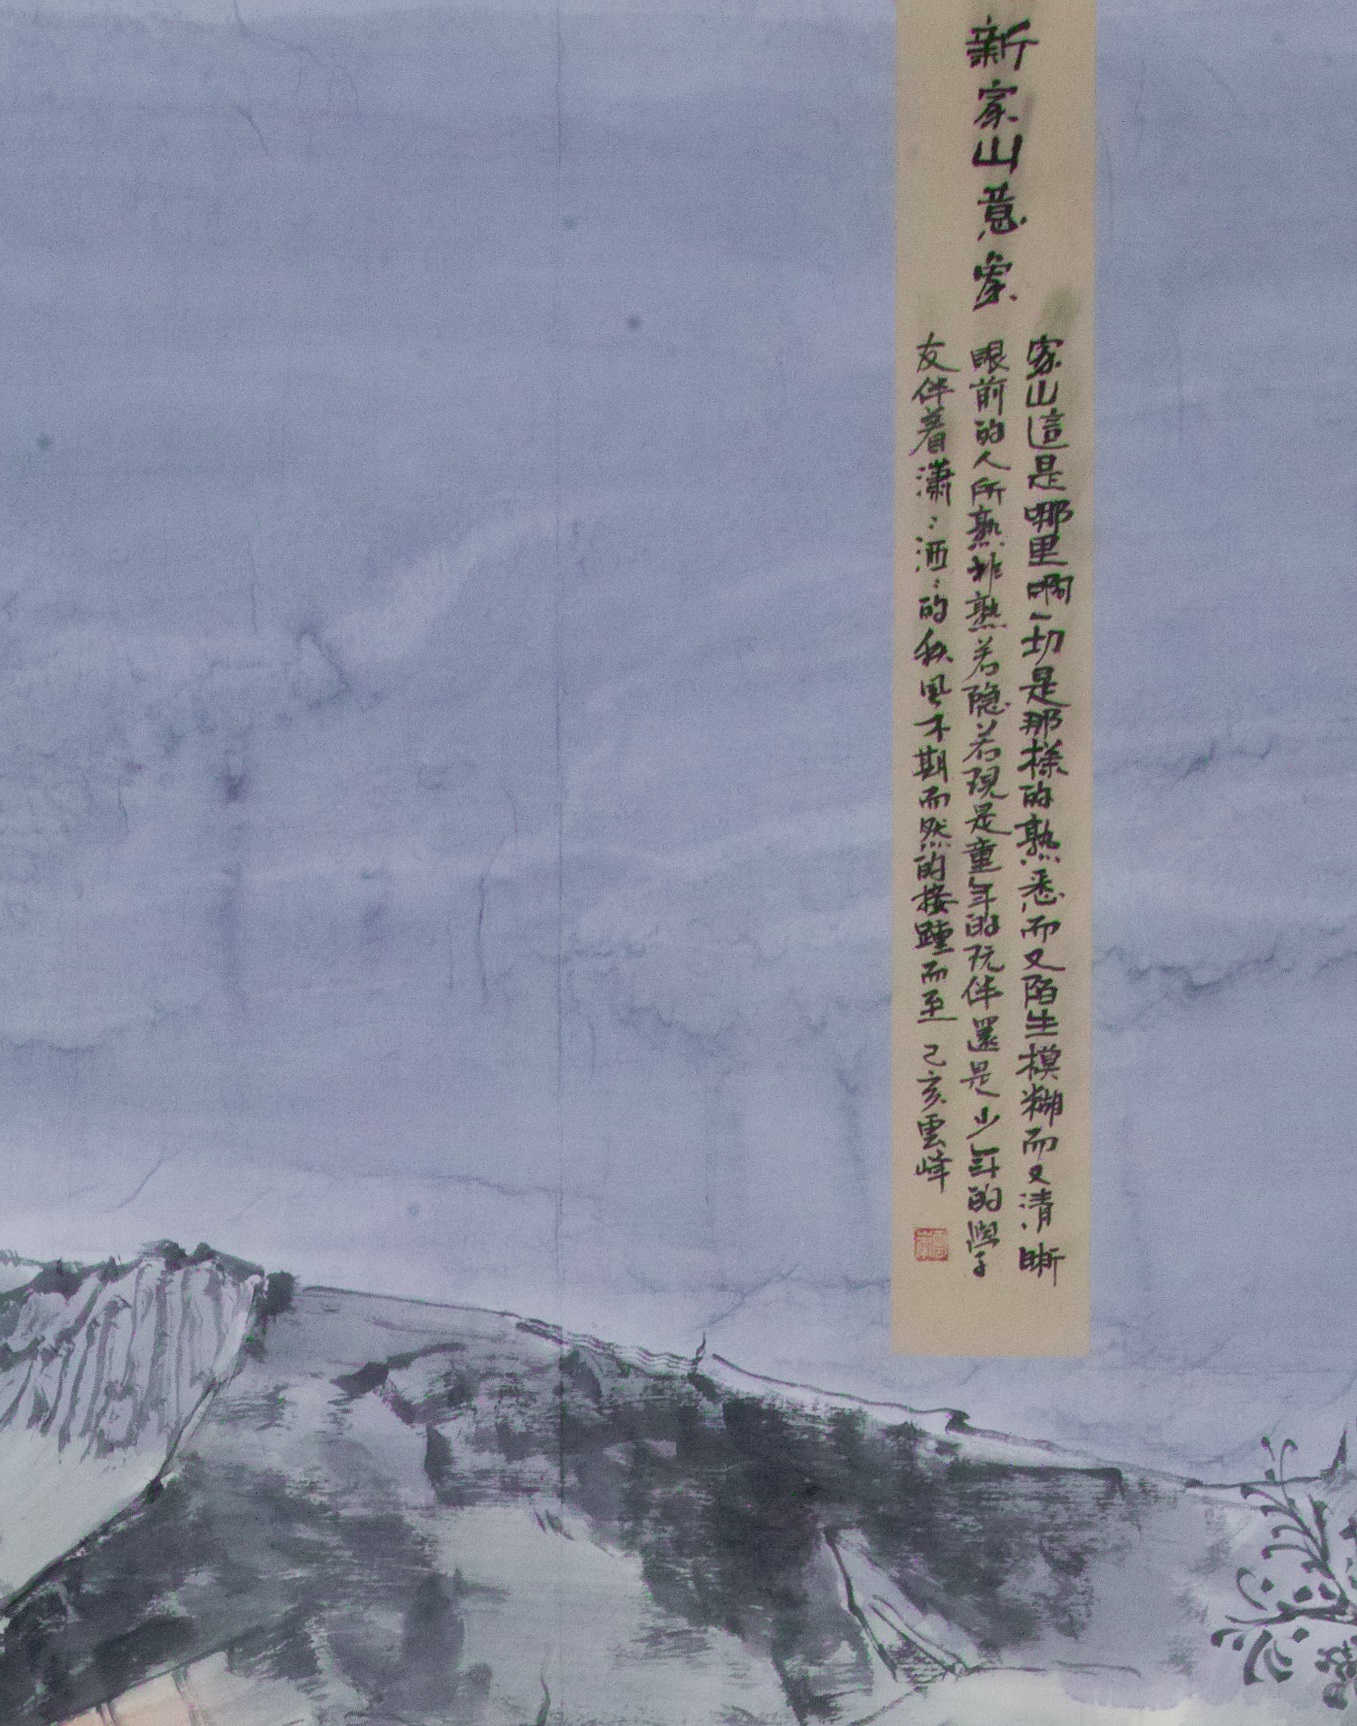 新家山意象
家山這是哪里啊一切是那樣的熟悉而又陌生模糊而又清晰
眼前的人所熟非熟若隐若現是童年的玩伴還是少年的學
友伴着瀟:洒:的秋風不期而然的接踵而至 己亥雲峰